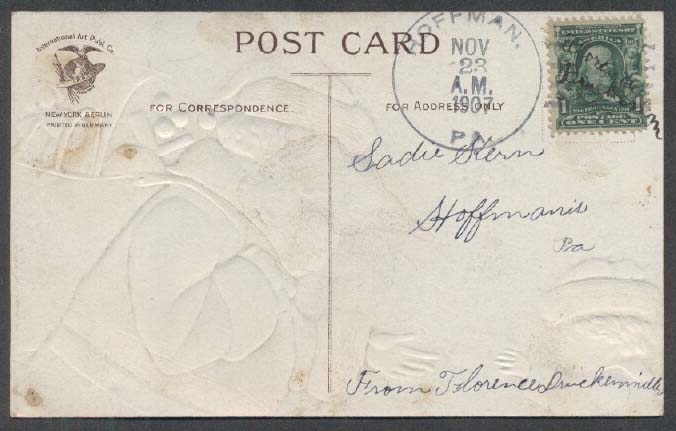 International Art Publ. Co.
NEW YORK BERLIN
PRINTED IN GERMANY
POST CARD
FOR CORRESPONDENCE
FOR ADDRESS ONLY
HOFFMAN.
NOV
23
A.M.
1907
PA.
UNITED STATES OF AMERICA
1 1
POSTAGE
ONE CENT
Sadie Stern
Hoffmanis
Pa
From Florence